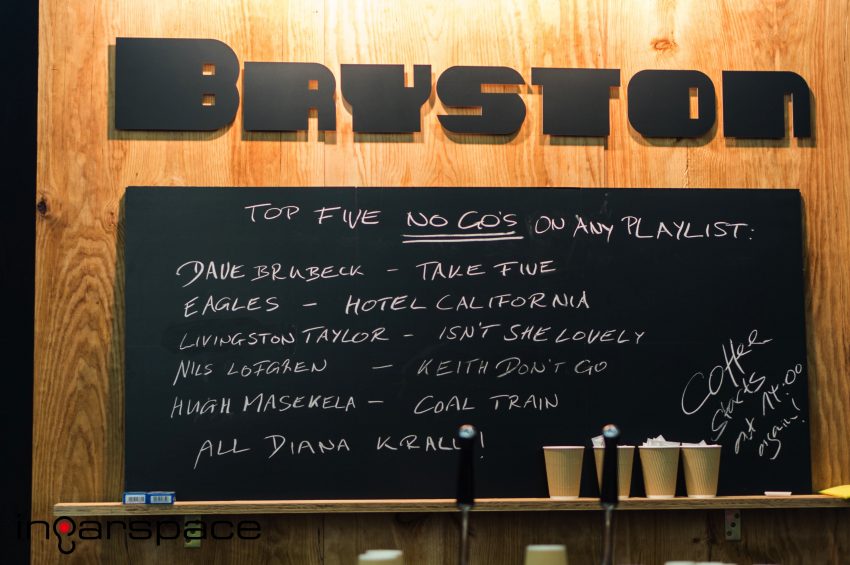 BRYSTON
TOP FIVE NO GO'S ON ANY PLAYLIST:
DAVE BRUBECK - TAKE FIVE
EAGLES - HOTEL CALIFORNIA
LIVINGSTON TAYLOR - ISN'T SHE LOVELY
NILS LOFGREN - KEITH DON'T GO
HUGH MASEKELA - COAL TRAIN
ALL DIANA KRALL!
Coffee
starts
at 14:00
again!
inearspace